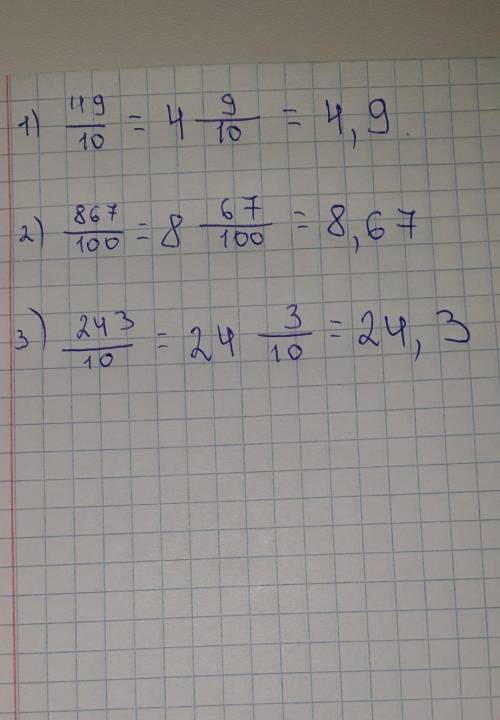 1) 49/10 = 4 9/10 = 4,9.
2) 867/100 = 8 67/100 = 8,67
3) 243/10 = 24 3/10 = 24,3